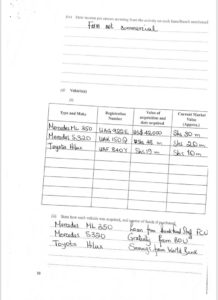 (iv) State income per annum accruing from the activity on each farm/Ranch mentioned
Farm not commercial
(f) Vehicle(s)
(i)
Type and Make Registration Number Value of acquisition and date acquired Current Market Value (Approx.)
Mercedes ML 350 US$ 45,000 Shs 80 m
Mercedes S320 UAK 150 Shs 48 m Shs 20 m
Toyota Hilux UAF 840Y Shs 19 m Shs 10 m
(ii) State how each vehicle was acquired, and source of funds if purchased.
Mercedes ML 350 Loan from
Mercedes S320 Gratuity from BOU
Toyota Hilux Savings from World Bank
10